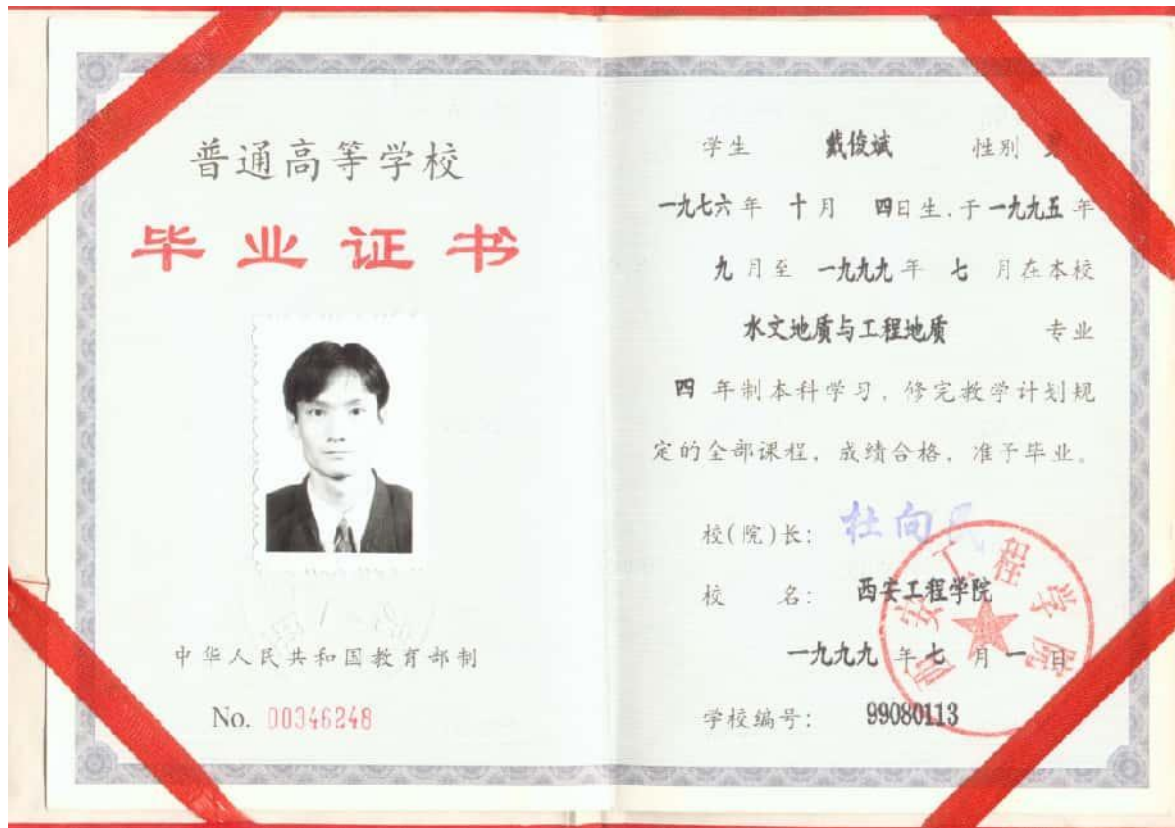 普通高等学校
毕业证书
中华人民共和国教育部制
No. 00346248
学生 戴俊斌 性别
一九七六年 十月 四日生,于一九九五年
九月至 一九九九年 七 月在本校
水文地质与工程地质 专业
四 年制本科学习,修完教学计划规
定的全部课程,成绩合格,准予毕业。
校(院)长: 杜向民
校 名: 西安工程学院
一九九九 年七 月一日
学校编号: 99080113
西安工程学院